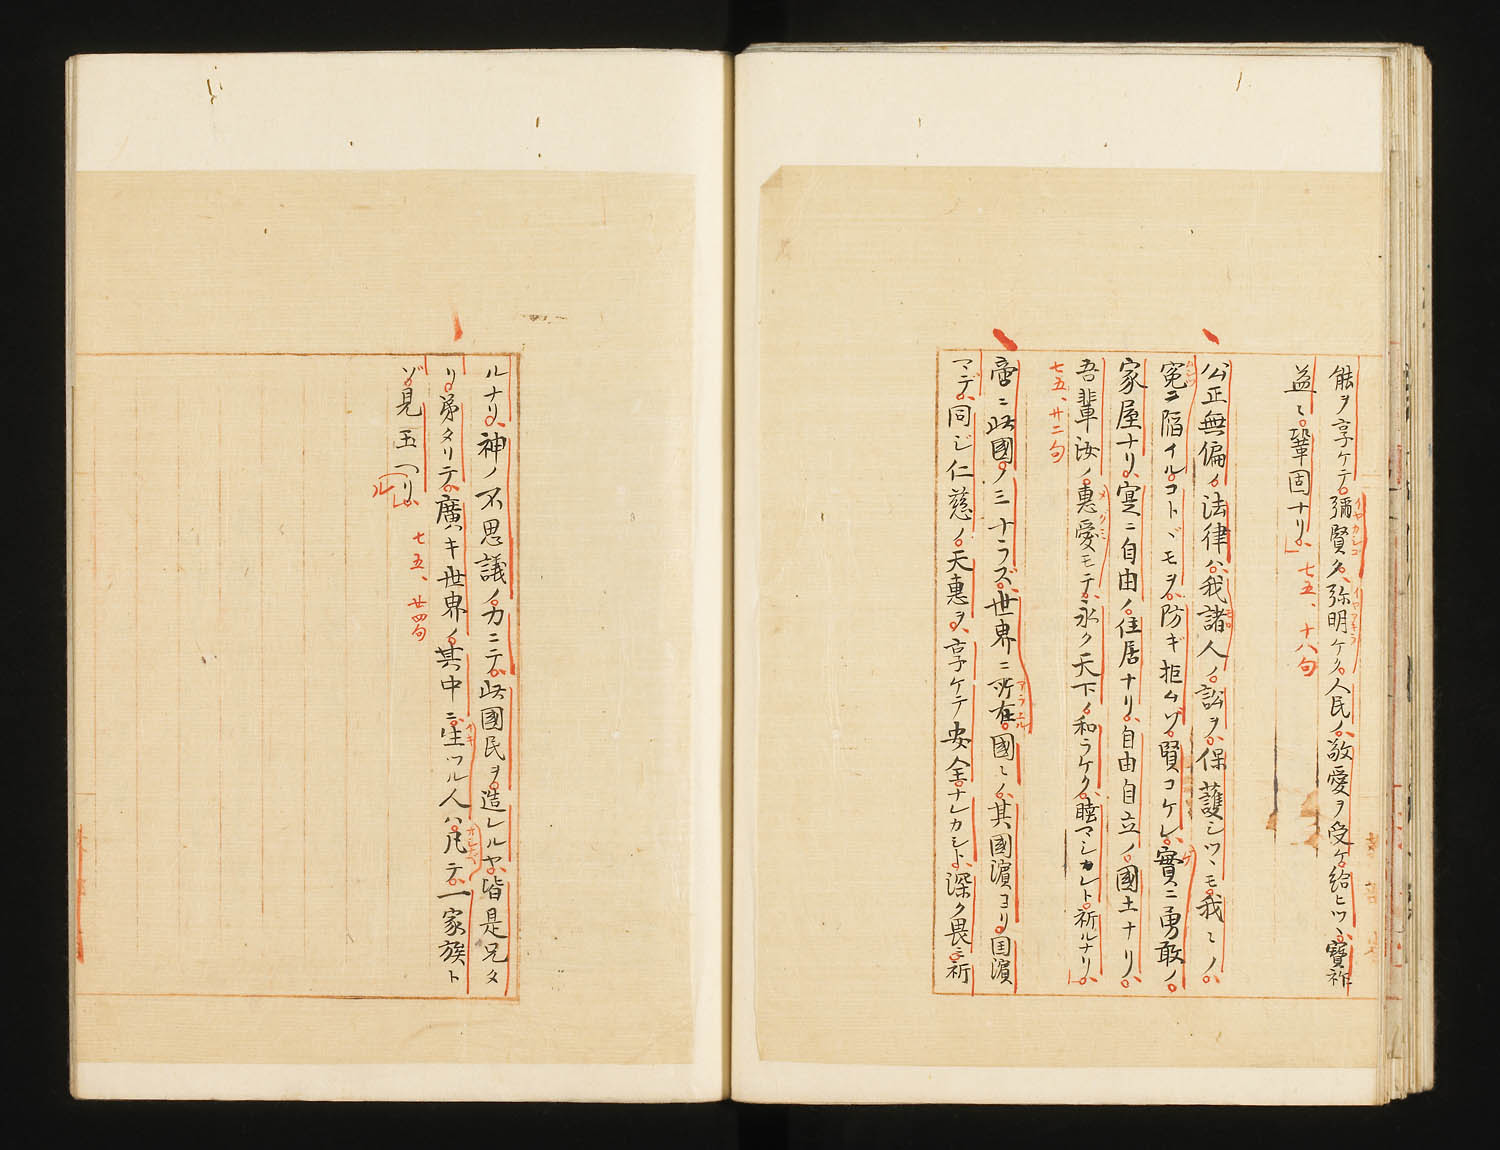 能ヲ享ケテ彌賢ク、弥明ケク人民ノ敬愛ヲ受ケ給ヒツヽ寶祚
益〻鞏固ナリ、」七五、十八句
公正無偏ノ法律ハ、我諸人ノ訟ヲ保護シツヽモ我〻ノ
冤ニ陷イルコトヾモヲ防ギ拒ムゾ賢コケレ、實ニ勇敢ノ
家屋ナリ、寔ニ自由ノ住居ナリ、自由自立ノ國土ナリ、
吾輩汝ノ惠愛モテ、永ク天下ノ和ラケク、睦マシカレト祈ルナリ」
七五、廿二句
啻ニ此國ノミナラズ、世界ニ所在國〻ノ、其國濵ヨリ国濵
マデ、同ジ仁慈ノ天惠ヲ、享ケテ安全ナレカシト、深ク畏ミ祈
ルナリ、神ノ不思議ノ力ニテ、此國民ヲ造レルヤ、皆是兄タ
リ弟タリテ、廣ハキ世界ノ其中ニ、生ツル人ハ凡テ一家族ト
ゾ見玉ヘリ
ル
七五、廿四句